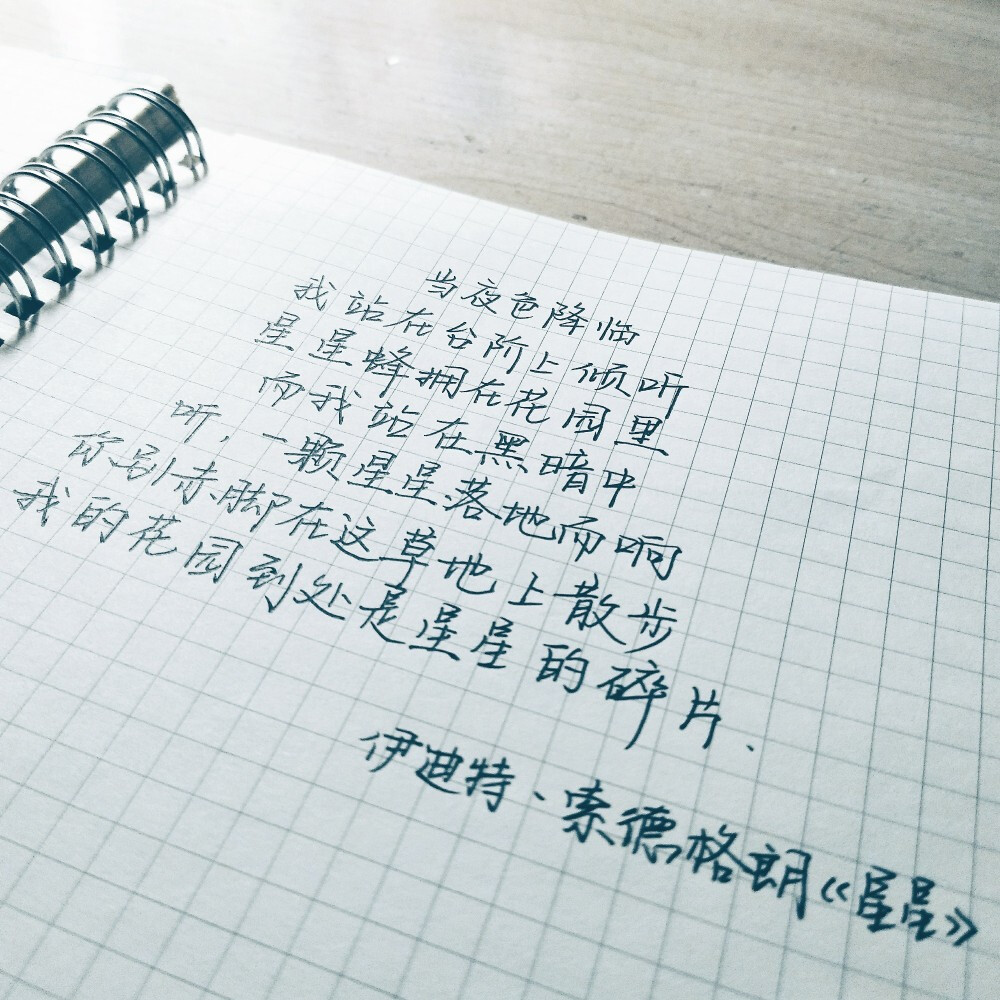 当夜色降临
我站在台阶上倾听
星星蜂拥在花园里
而我站在黑暗中
听，一颗星星落地而响
你别赤脚在这草地上散步
我的花园到处是星星的碎片、
伊迪特、索德格朗《星星》